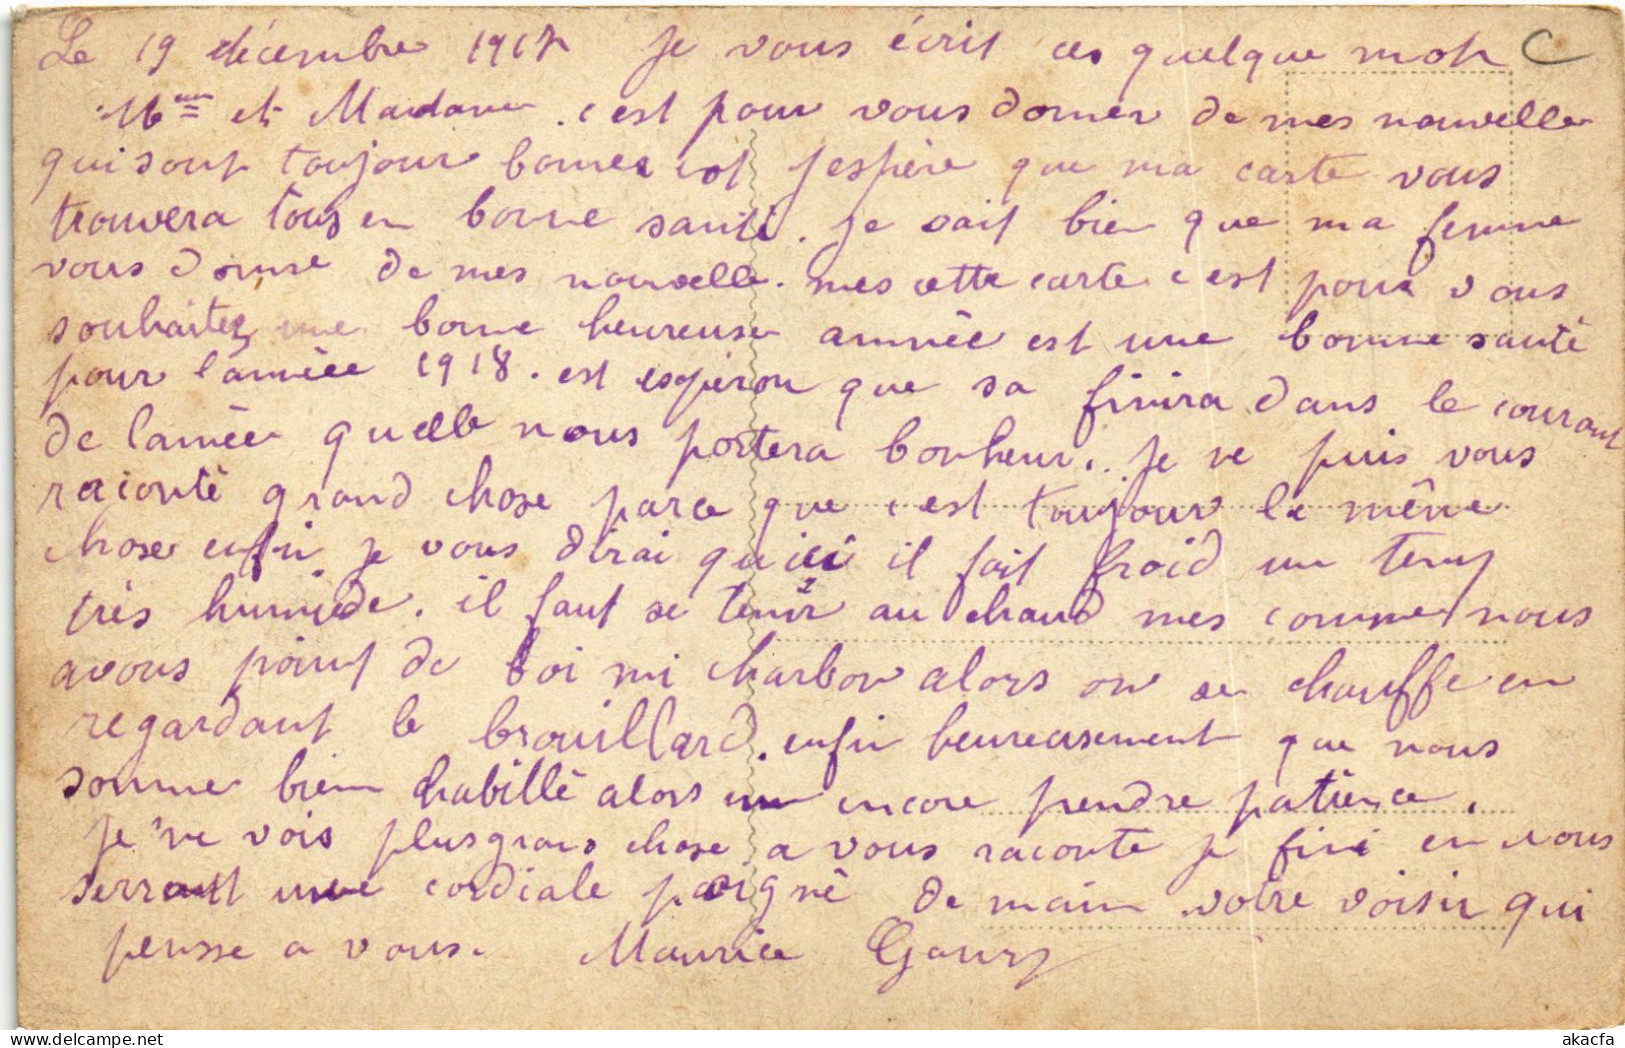 Le 19 décembre 1917 Je vous écrit ces quelque mots C
et Madame. c'est pour vous donner de mes nouvelle
qui sont toujour bonnes est J'espère que ma carte vous
trouvera tous en bonne santé. Je sait bien que ma femme
vous donne de mes nouvelle. mes cette carte c'est pour vous
souhaitez une bonne heureuse année est une bonne santé
pour l'année 1918. est espéron que sa finira dans le courant
de l'année quelle nous portera bonheur. Je ne puis vous
raconté grand chose parce que c'est toujour la même
chose enfin je vous dirai qu'ici il fait froid un temp
très humide. il faut se tenir au chaud mes comme nous
avons point de boi ni charbon alors on se chauffe en
regardant le brouillard. enfin heureusement que nous
somme bien habillé alors encore prendre patience.
Je ne vois plus grans chose a vous raconte je fini en vous
serrant une cordiale poigné de main votre voisin qui
pensse a vous. Maurice
akacfa